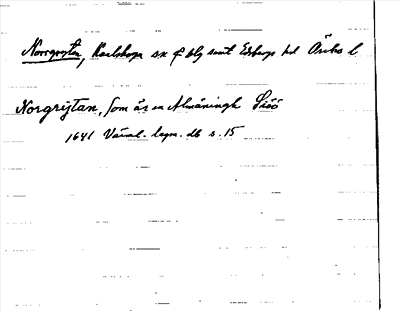 Norrgryten, Karlskoga sn o blg samt Edsbergs hd Örebro l
Norgrÿtan, som är en Almäningh Siöö
1641 Värml. lagm. db s. 15